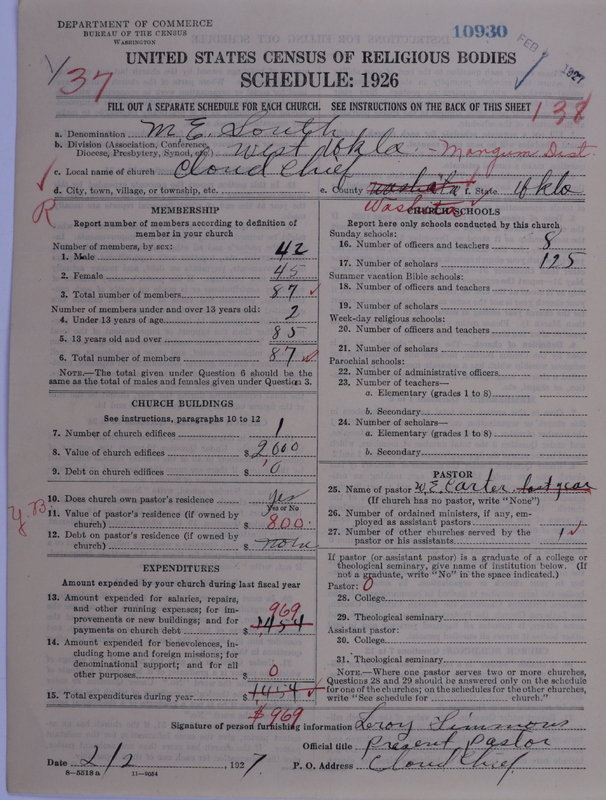 DEPARTMENT OF COMMERCE
BUREAU OF THE CENSUS
WASHINGTON
10930
FEB 1927
UNITED STATES CENSUS OF RELIGIOUS BODIES
SCHEDULE: 1926
37
FILL OUT A SEPARATE SCHEDULE FOR EACH CHURCH. SEE INSTRUCTIONS ON THE BACK OF THIS SHEET
138
a. Denomination M. E. South
b. Division (Association, Conference, Diocese, Presbytery, Synod, etc.) West Okla. - Mangum Dist.
c. Local name of church Cloud Chief
d. City, town, village, or township, etc. e. County Washita f. State Okla
Washita
R
MEMBERSHIP
Report number of members according to definition of member in your church
Number of members, by sex:
1. Male 42
2. Female 45
3. Total number of members 87
Number of members under and over 13 years old:
4. Under 13 years of age 2
5. 13 years old and over 85
6. Total number of members 87
NOTE.—The total given under Question 6 should be the
same as the total of males and females given under Question 3.
CHURCH BUILDINGS
See instructions, paragraphs 10 to 12
7. Number of church edifices 1
8. Value of church edifices $ 2000
9. Debt on church edifices $ 0
10. Does church own pastor's residence yes
Yes or No
11. Value of pastor's residence (if owned by
church) $ 800.
12. Debt on pastor's residence (if owned by
church) $ none
EXPENDITURES
Amount expended by your church during last fiscal year
13. Amount expended for salaries, repairs,
and other running expenses; for im-
provements or new buildings; and for
payments on church debt $ 1454
969
14. Amount expended for benevolences, in-
cluding home and foreign missions; for
denominational support; and for all
other purposes $ 0
15. Total expenditures during year $ 1454
$969
CHURCH SCHOOLS
Report here only schools conducted by this church
Sunday schools:
16. Number of officers and teachers 8
17. Number of scholars 125
Summer vacation Bible schools:
18. Number of officers and teachers
19. Number of scholars
Week-day religious schools:
20. Number of officers and teachers
21. Number of scholars
Parochial schools:
22. Number of administrative officers
23. Number of teachers—
a. Elementary (grades 1 to 8)
b. Secondary
24. Number of scholars—
a. Elementary (grades 1 to 8)
b. Secondary
PASTOR
25. Name of pastor W. E. Carter last year
(If church has no pastor, write "None")
26. Number of ordained ministers, if any, em-
ployed as assistant pastors
27. Number of other churches served by the
pastor or his assistants 1
If pastor (or assistant pastor) is a graduate of a college or
theological seminary, give name of institution below. (If
not a graduate, write "No" in the space indicated.)
Pastor: 0
28. College
29. Theological seminary
Assistant pastor:
30. College
31. Theological seminary
NOTE.—Where one pastor serves two or more churches,
Questions 28 and 29 should be answered only on the schedule
for one of the churches; on the schedules for the other churches,
write "See schedule for church."
Signature of person furnishing information Leroy Simmons
Official title Present Pastor
Date 2/2, 1927 P. O. Address Cloud Chief
8—5518 a 11—9054